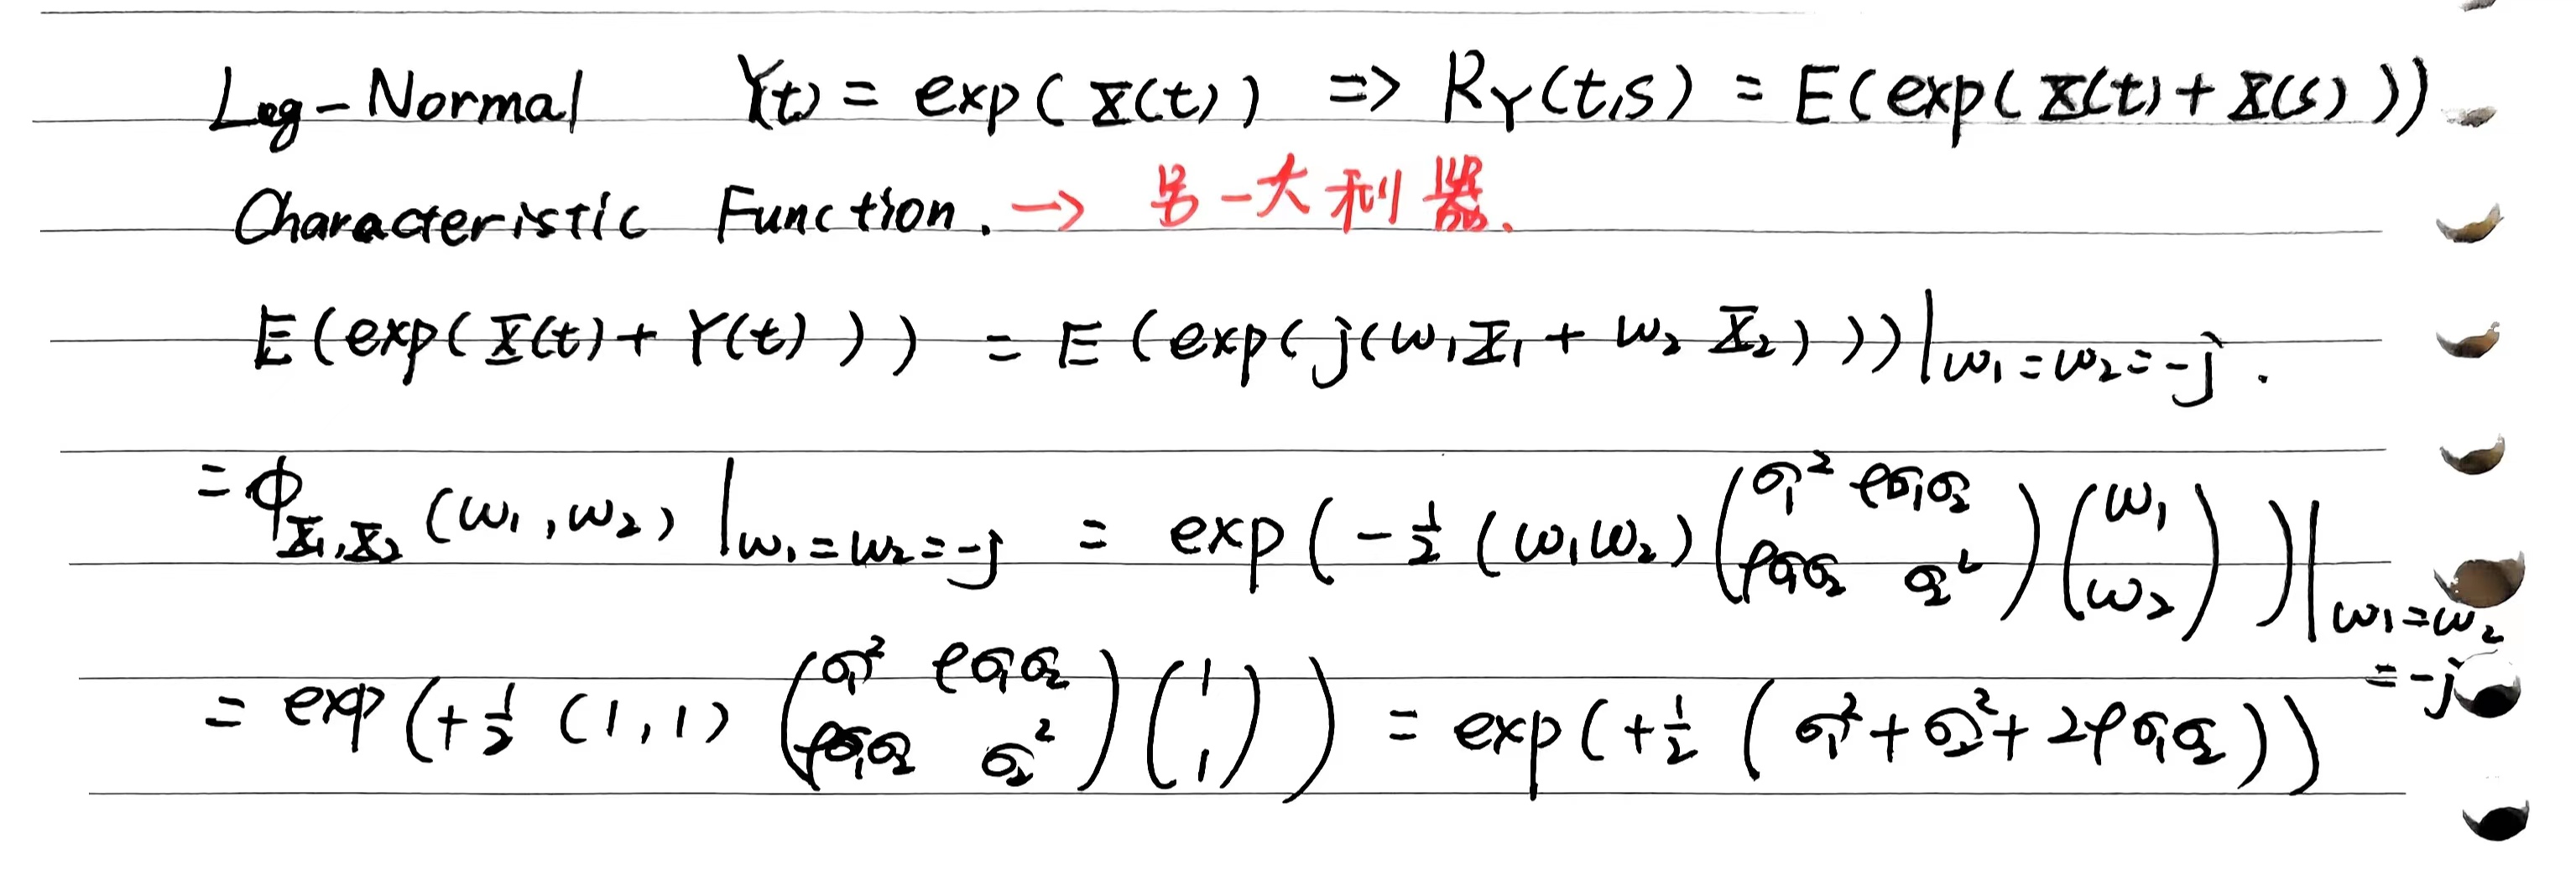 Log-Normal Y(t) = exp(X(t)) => R_Y(t,s) = E(exp(X(t)+X(s)))
Characteristic Function. → 另一大利器.
E(exp(X(t)+Y(t))) = E(exp(j(ω₁X₁+ω₂X₂)))|ω₁=ω₂=-j.
= ϕ_{X₁,X₂}(ω₁,ω₂)|ω₁=ω₂=-j = exp(-1/2 (ω₁ω₂)(σ₁² ρσ₁σ₂ ; ρσ₁σ₂ σ₂²)(ω₁ ; ω₂))|ω₁=ω₂=-j
= exp(+1/2 (1,1)(σ₁² ρσ₁σ₂ ; ρσ₁σ₂ σ₂²)(1 ; 1)) = exp(+1/2 (σ₁²+σ₂²+2ρσ₁σ₂))